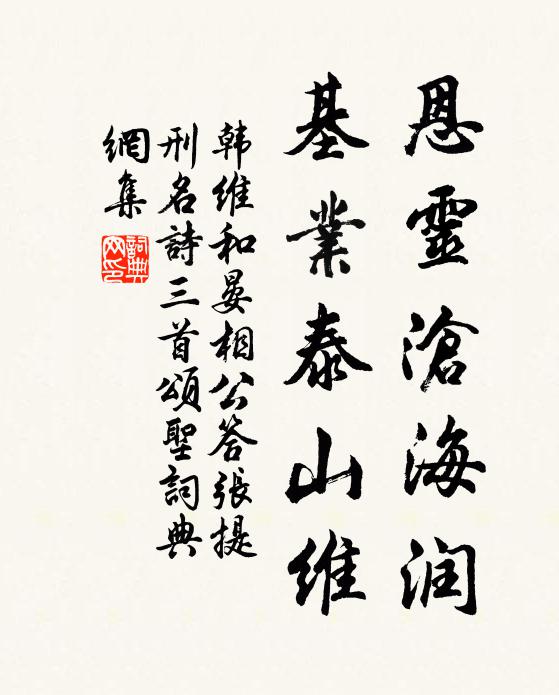 恩靈滄海润
基業泰山維
韩維和晏相公答張提
刑名詩三首頌聖詞典
網集
詞典網印